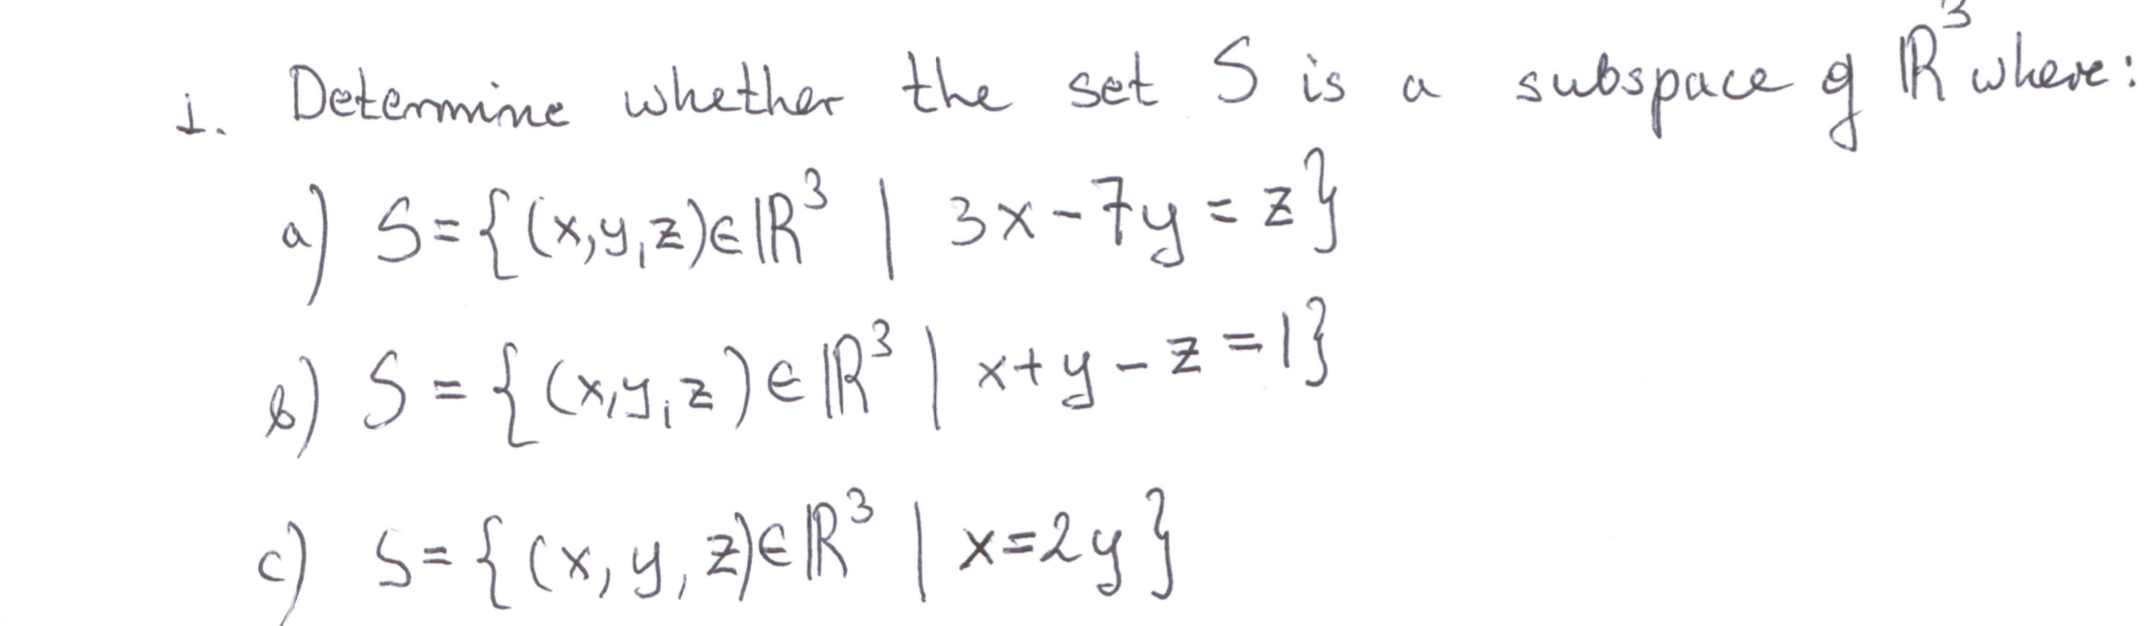 1. Determine whether the set S is a subspace of ℝ³ where:
a) S={(x,y,z)∈ℝ³ | 3x-7y=z}
b) S={(x,y,z)∈ℝ³ | x+y-z=1}
c) S={(x,y,z)∈ℝ³ | x=2y}